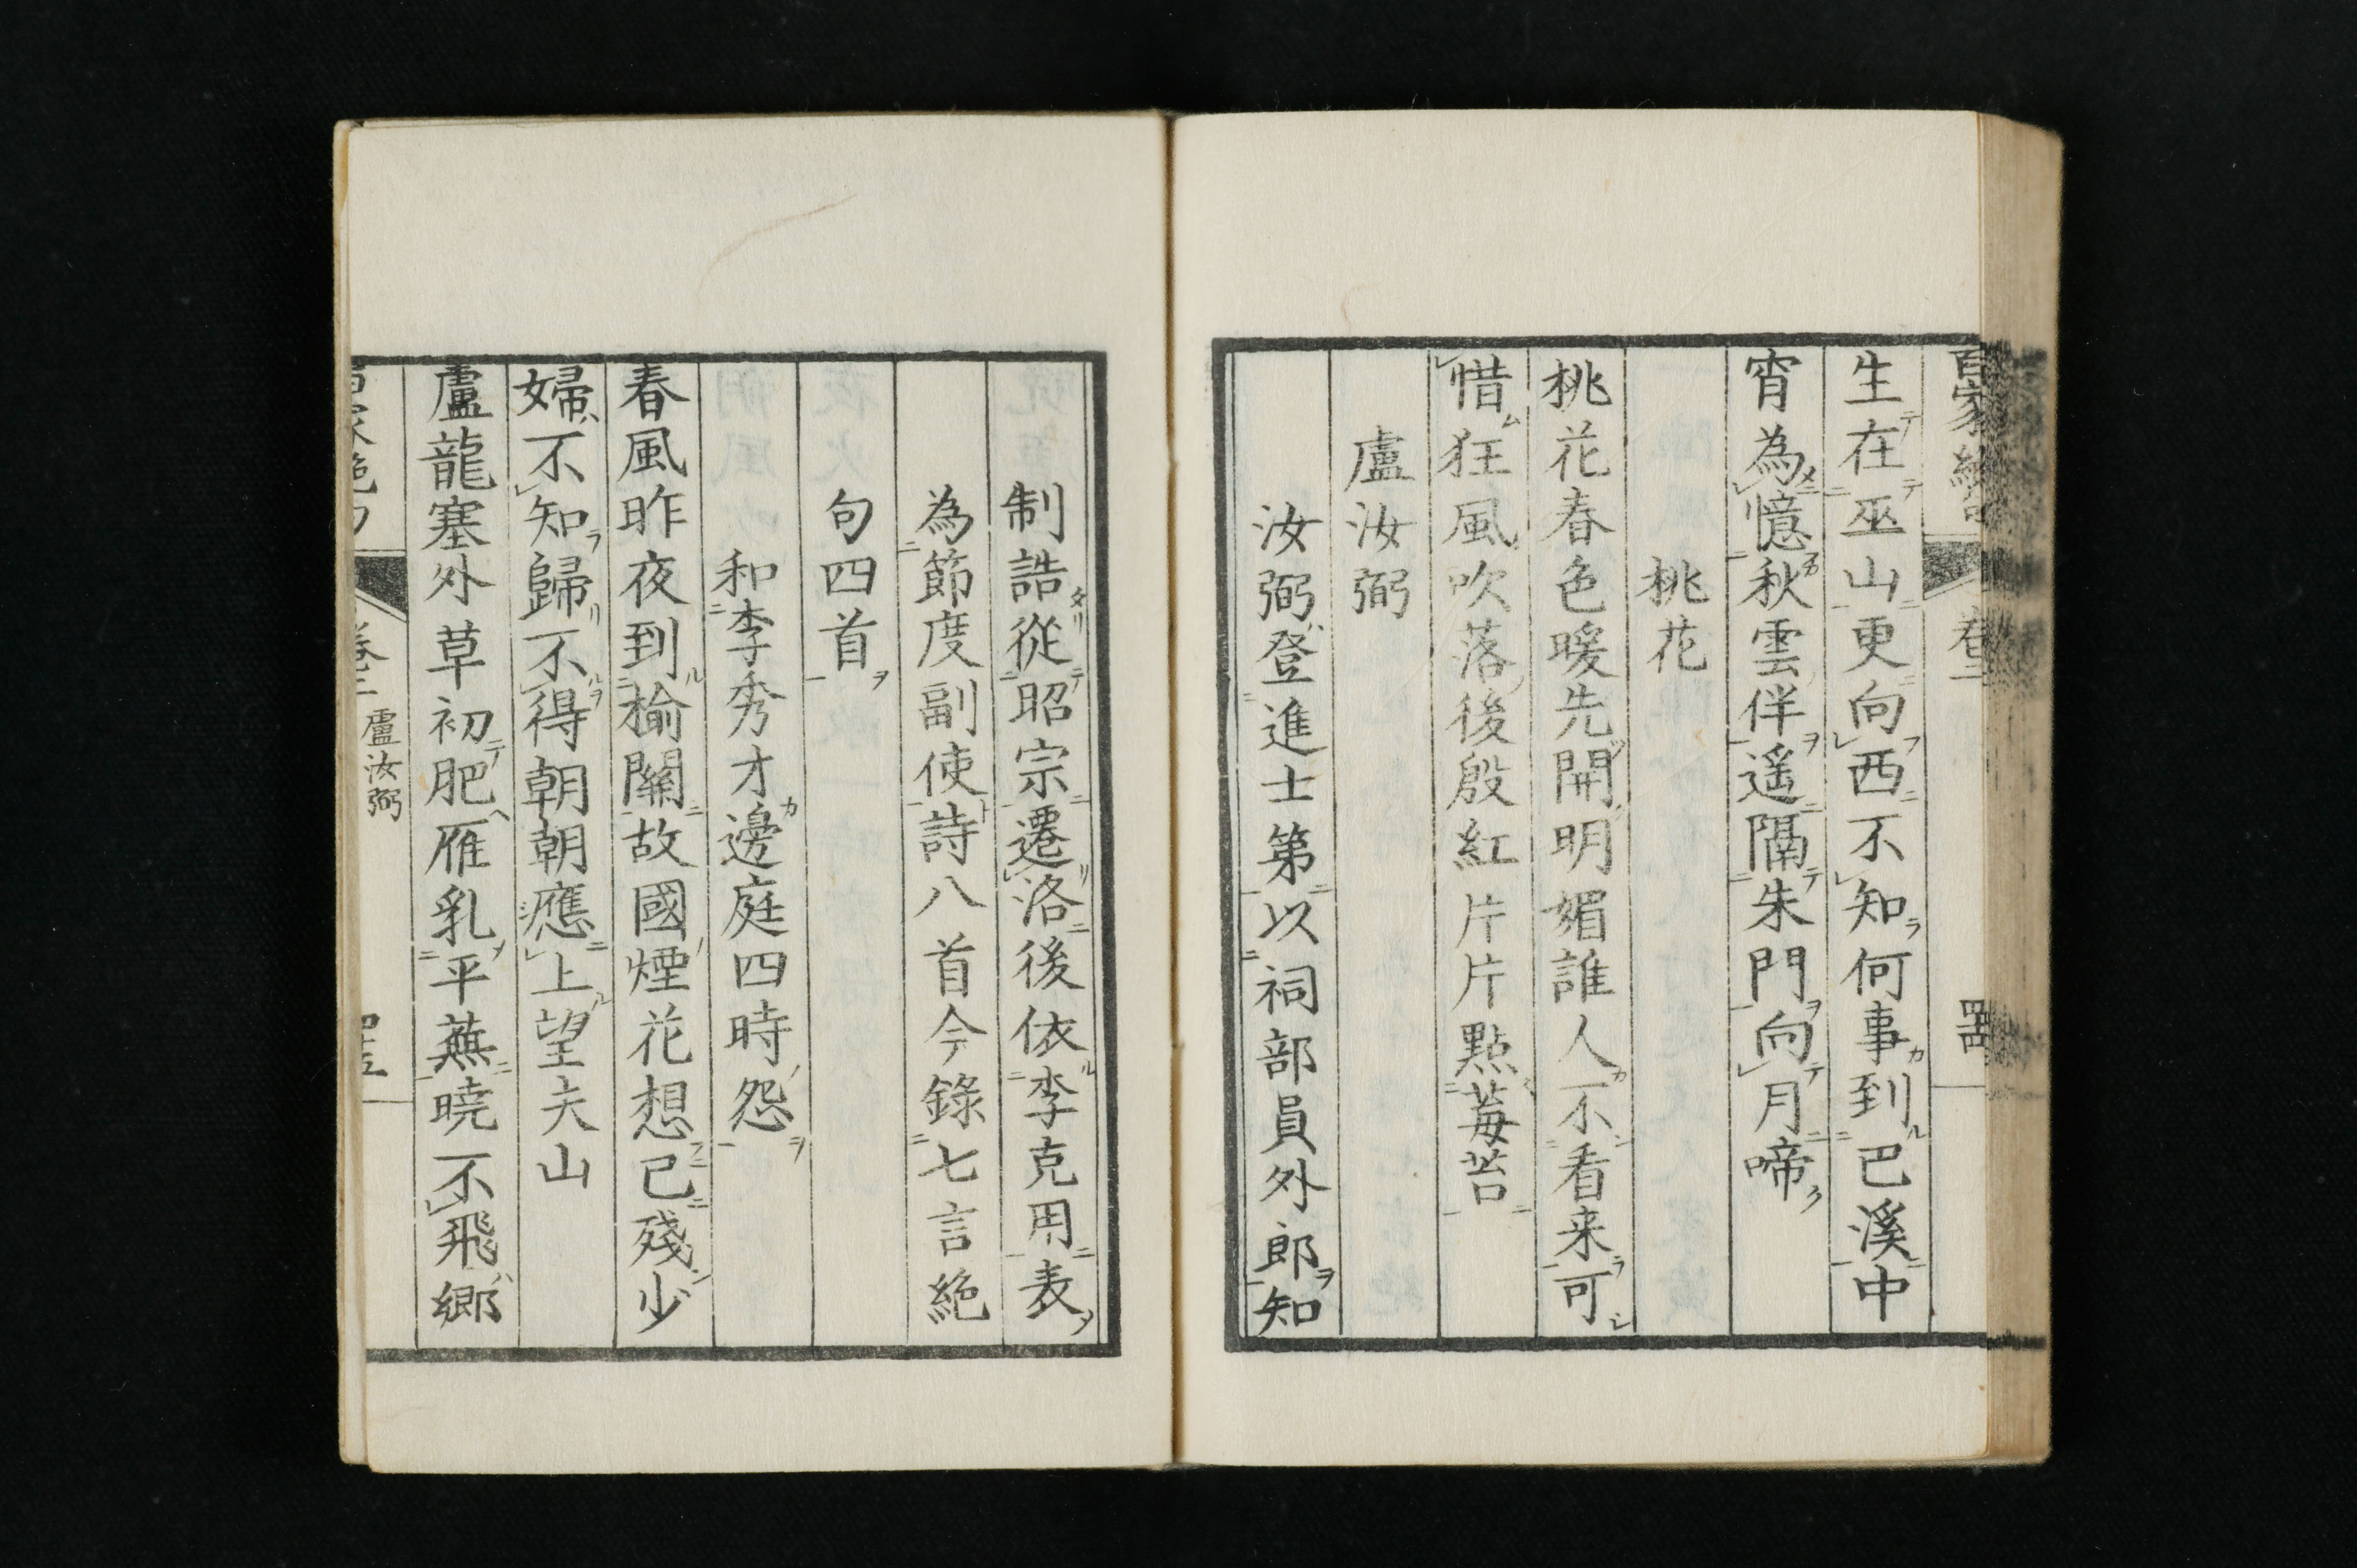 生在巫山更向西不知何事到巴溪中
宵為憶秋雲伴遥隔朱門向月啼
桃花
桃花春色暖先開明媚誰人不看来可
惜狂風吹落後殷紅片片點莓苔
盧汝弼
汝弼登進士第以祠部員外郎知
制誥從昭宗遷洛後依李克用表
為節度副使詩八首今錄七言絶
句四首
和李秀才邊庭四時怨
春風昨夜到榆關故國煙花想已殘少
婦不知歸不得朝朝應上望夫山
盧龍塞外草初肥雁乳平蕪曉不飛鄉
盧汝弼